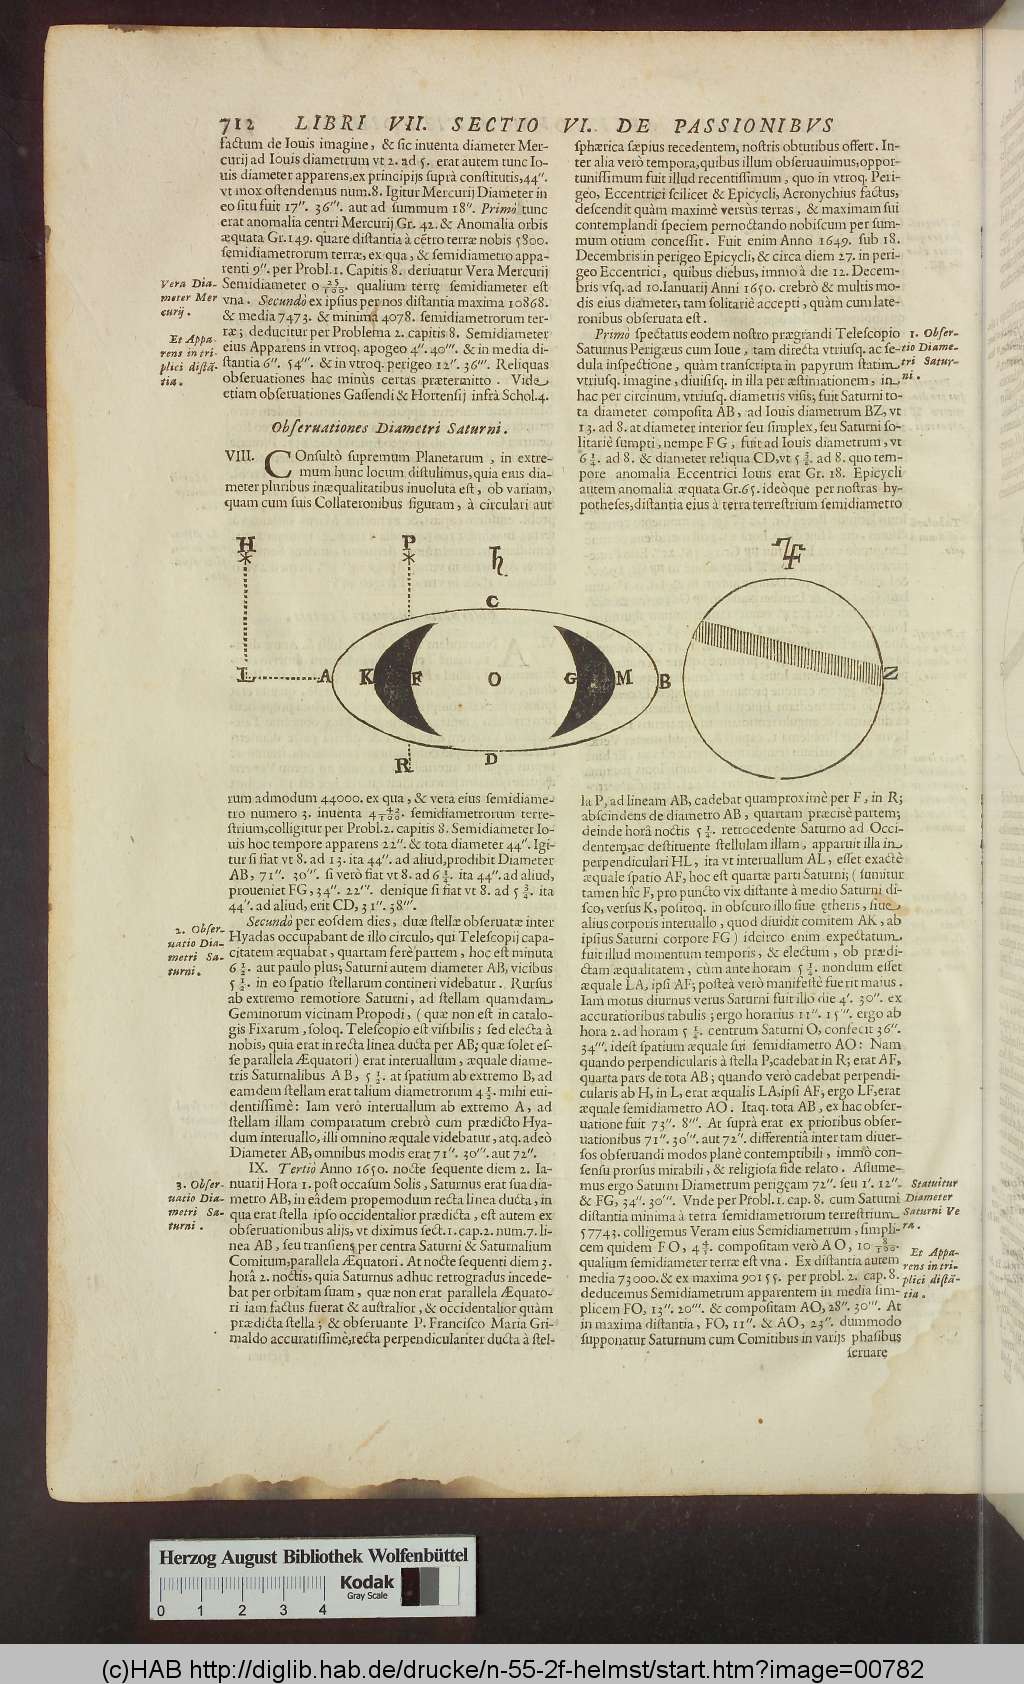 712 LIBRI VII. SECTIO VI. DE PASSIONIBVS
factum de Iouis imagine, & sic inuenta diameter Mer-
curij ad Iouis diametrum vt 2. ad 5. erat autem tunc Io-
uis diameter apparens, ex principijs suprà constitutis, 44''.
vt mox ostendemus num. 8. Igitur Mercurij Diameter in
eo situ fuit 17''. 36'''. aut ad summum 18''. Primò tunc
erat anomalia centri Mercurij Gr. 42. & Anomalia orbis
æquata Gr. 149. quare distantia à cētro terræ nobis 5800.
semidiametrorum terræ, ex qua, & semidiametro appa-
renti 9''. per Probl. 1. Capitis 8. deriuatur Vera Mercurij
Semidiameter 0 25/100. qualium terrę semidiameter est
vna. Secundò ex ipsius per nos distantia maxima 10868.
& media 7473. & minima 4078. semidiametrorum ter-
ræ; deducitur per Problema 2. capitis 8. Semidiameter
eius Apparens in vtroq. apogeo 4''. 40'''. & in media di-
stantia 6''. 54'''. & in vtroq. perigeo 12''. 36'''. Reliquas
obseruationes hac minùs certas prætermitto. Vide
etiam obseruationes Gassendi & Hortensij infrà Schol. 4.
Vera Dia-
meter Mer
curij.
Et Appa-
rens in tri-
plici distā-
tia.
Obseruationes Diametri Saturni.
VIII. COnsultò supremum Planetarum, in extre-
mum hunc locum distulimus, quia eius dia-
meter pluribus inæqualitatibus inuoluta est, ob variam,
quam cum suis Collateronibus figuram, à circulari aut
sphærica sæpius recedentem, nostris obtutibus offert. In-
ter alia verò tempora, quibus illum obseruauimus, oppor-
tunissimum fuit illud recentissimum, quo in vtroq. Peri-
geo, Eccentrici scilicet & Epicycli, Acronychius factus,
descendit quàm maximè versùs terras, & maximam sui
contemplandi speciem pernoctando nobiscum per sum-
mum otium concessit. Fuit enim Anno 1649. sub 18.
Decembris in perigeo Epicycli, & circa diem 27. in peri-
geo Eccentrici, quibus diebus, immò à die 12. Decem-
bris vsq. ad 10. Ianuarij Anni 1650. crebrò & multis mo-
dis eius diameter, tam solitariè accepti, quàm cum late-
ronibus obseruata est.
Primò spectatus eodem nostro prægrandi Telescopio
Saturnus Perigæus cum Ioue, tam directa vtriusq. ac se-
dula inspectione, quàm transcripta in papyrum statim
vtriusq. imagine, diuisisq. in illa per æstimationem, in
hac per circinum, vtriusq. diametris visis; fuit Saturni to-
ta diameter composita AB, ad Iouis diametrum BZ, vt
13. ad 8. at diameter interior seu simplex, seu Saturni so-
litariè sumpti, nempe FG, fuit ad Iouis diametrum, vt
6 1/4. ad 8. & diameter reliqua CD, vt 5 3/4. ad 8. quo tem-
pore anomalia Eccentrici Iouis erat Gr. 18. Epicycli
autem anomalia æquata Gr. 65. ideòque per nostras hy-
potheses, distantia eius à terra terrestrium semidiametro
1. Obser-
uatio Diame-
tri Satur-
ni.
H P ♄ ♃
C
L A K F O G M B Z
R D
rum admodum 44000. ex qua, & vera eius semidiame-
tro numero 3. inuenta 4 42/100. semidiametrorum terre-
strium, colligitur per Probl. 2. capitis 8. Semidiameter Io-
uis hoc tempore apparens 22''. & tota diameter 44''. Igi-
tur si fiat vt 8. ad 13. ita 44''. ad aliud, prodibit Diameter
AB, 71''. 30'''. si verò fiat vt 8. ad 6 1/4. ita 44''. ad aliud,
proueniet FG, 34''. 22'''. denique si fiat vt 8. ad 5 3/4. ita
44''. ad aliud, erit CD, 31''. 38'''.
Secundò per eosdem dies, duæ stellæ obseruatæ inter
Hyadas occupabant de illo circulo, qui Telescopij capa-
citatem æquabat, quartam ferè partem, hoc est minuta
6 1/2. aut paulo plus; Saturni autem diameter AB, vicibus
5 1/2. in eo spatio stellarum contineri videbatur. Rursus
ab extremo remotiore Saturni, ad stellam quamdam
Geminorum vicinam Propodi, (quæ non est in catalo-
gis Fixarum, soloq. Telescopio est visibilis; sed electa à
nobis, quia erat in recta linea ducta per AB; quæ solet es-
se parallela Æquatori) erat interuallum, æquale diame-
tris Saturnalibus AB, 5 1/2. at spatium ab extremo B, ad
eamdem stellam erat talium diametrorum 4 1/2. mihi eui-
dentissimè: Iam verò interuallum ab extremo A, ad
stellam illam comparatum crebrò cum prædicto Hya-
dum interuallo, illi omnino æquale videbatur, atq. adeò
Diameter AB, omnibus modis erat 71''. 30'''. aut 72''.
IX. Tertiò Anno 1650. nocte sequente diem 2. Ia-
nuarij Hora 1. post occasum Solis, Saturnus erat sua dia-
metro AB, in eâdem propemodum recta linea ducta, in
qua erat stella ipso occidentalior prædicta, est autem ex
obseruationibus alijs, vt diximus sect. 1. cap. 2. num. 7. li-
nea AB, seu transiens per centra Saturni & Saturnalium
Comitum, parallela Æquatori. At nocte sequenti diem 3.
horâ 2. noctis, quia Saturnus adhuc retrogradus incede-
bat per orbitam suam, quæ non erat parallela Æquato-
ri iam factus fuerat & australior, & occidentalior quàm
prædicta stella; & obseruante P. Francisco Maria Gri-
maldo accuratissimè, recta perpendiculariter ducta à stel-
2. Obser-
uatio Dia-
metri Sa-
turni.
3. Obser-
uatio Dia-
metri Sa-
turni.
la P, ad lineam AB, cadebat quamproximè per F, in R;
abscindens de diametro AB, quartam præcisè partem;
deinde horâ noctis 5 1/4. retrocedente Saturno ad Occi-
dentem, ac destituente stellulam illam, apparuit illa in
perpendiculari HL, ita vt interuallum AL, esset exactè
æquale spatio AF, hoc est quartæ parti Saturni; (sumitur
tamen hîc F, pro puncto vix distante à medio Saturni di-
sco, versus K, positoq. in obscuro illo siue ętheris, siue
alius corporis interuallo, quod diuidit comitem AK, ab
ipsius Saturni corpore FG) idcirco enim expectatum
fuit illud momentum temporis, & electum, ob prædi-
ctam æqualitatem, cùm ante horam 5 1/4. nondum esset
æquale LA, ipsi AF; posteà verò manifestè fuerit maius.
Iam motus diurnus verus Saturni fuit illo die 4'. 30''. ex
accuratioribus tabulis; ergo horarius 11''. 15'''. ergo ab
hora 2. ad horam 5 1/4. centrum Saturni O, confecit 36''.
34'''. idest spatium æquale sui semidiametro AO: Nam
quando perpendicularis à stella P, cadebat in R; erat AF,
quarta pars de tota AB; quando verò cadebat perpendi-
cularis ab H, in L, erat æqualis LA, ipsi AF; ergo LF, erat
æquale semidiametro AO. Itaq. tota AB, ex hac obser-
uatione fuit 73''. 8'''. At suprà erat ex prioribus obser-
uationibus 71''. 30'''. aut 72''. differentiâ inter tam diuer-
sos obseruandi modos planè contemptibili, immò con-
sensu prorsus mirabili, & religiosa fide relato. Assume-
mus ergo Saturni Diametrum perigęam 72''. seu 1'. 12''.
& FG, 34''. 30'''. Vnde per Probl. 1. cap. 8. cum Saturni
distantia minima à terra semidiametrorum terrestrium
57743. colligemus Veram eius Semidiametrum, simpli-
cem quidem FO, 4 4/5. compositam verò AO, 10 8/100.
qualium semidiameter terræ est vna. Ex distantia autem
media 73000. & ex maxima 90155. per probl. 2. cap. 8.
deducemus Semidiametrum apparentem in media sim-
plicem FO, 13''. 20'''. & compositam AO, 28''. 30'''. At
in maxima distantia, FO, 11''. & AO, 23''. dummodo
supponatur Saturnum cum Comitibus in varijs phasibus
seruare
Statuitur
Diameter
Saturni Ve
ra.
Et Appa-
rens in tri-
plici distā-
tia.
Herzog August Bibliothek Wolfenbüttel
Kodak
Gray Scale
0 1 2 3 4
(c)HAB http://diglib.hab.de/drucke/n-55-2f-helmst/start.htm?image=00782